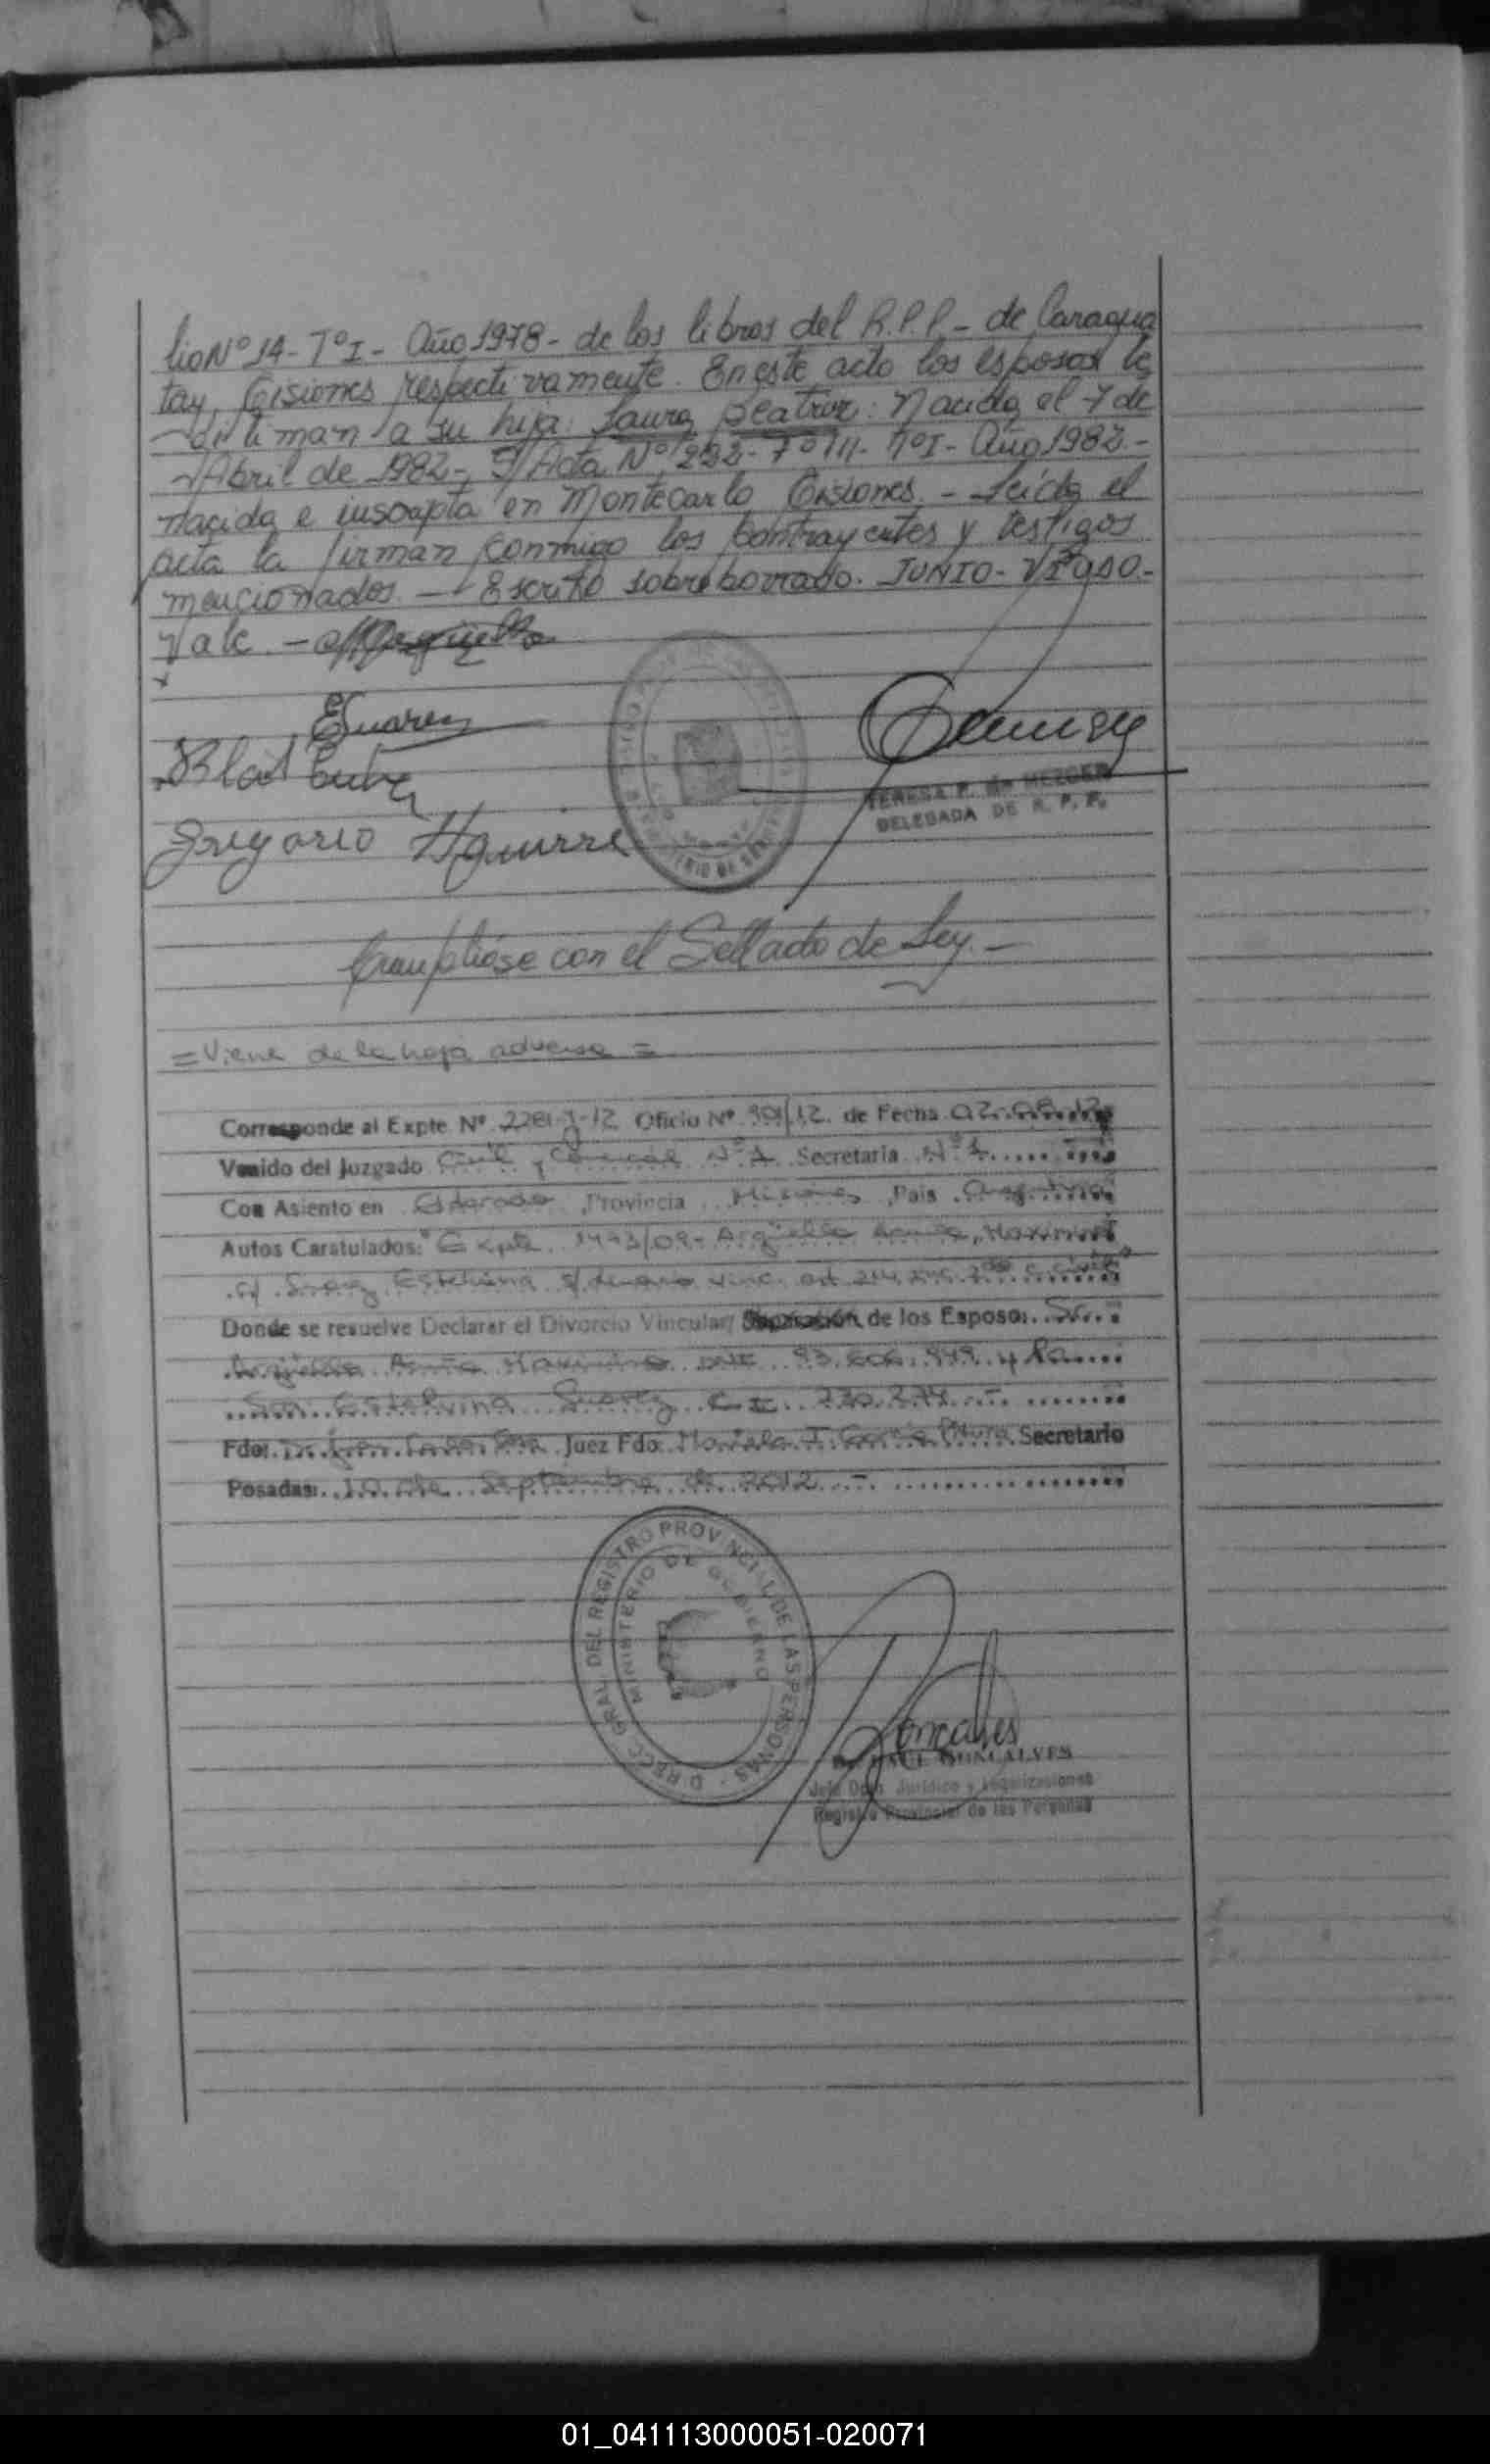 lio Nº 14 - Tº I - Año 1978 - de los libros del R.P.P. - de Caragua
tay, Misiones respectivamente. En este acto los esposos le
gitiman a su hija: Laura Beatriz: Nacida el 7 de
Abril de 1982 - Acta Nº 222 - Tº I - Año 1982 -
nacida e inscripta en Montecarlo Misiones. - Leída el
acta la firman conmigo los contrayentes y testigos
mencionados. - Escrito sobre borrado. JUNIO -
Vale. -
ESuarez
Blas
Gregorio Aguirre
TERESA P. de MEZGER
DELEGADA DE R. P. P.
Cumplióse con el Sellado de Ley. -
= Viene de la hoja adversa =
Corresponde al Expte Nº 2281-J-12 Oficio Nº 901/12 de Fecha 02.08.12
Venido del Juzgado Civil y Comercial Nº 1 Secretaria Nº 1
Con Asiento en Eldorado Provincia Misiones Pais Argentina
Autos Caratulados: "Expte. 1473/09 - Argüello Acuña, Maximino
c/ Suarez Estelvina s/ divorcio vinc. art. 214
Donde se resuelve Declarar el Divorcio Vincular/ Separación de los Esposos: Sr.
Argüello Acuña Maximino DNI 93.606.949 y la
Sra. Estelvina Suarez C.I. 230.274 -
Fdo: Juez Fdo: Mariela J. Secretario
Posadas: 10 de Septiembre de 2012 -
DIRECC. GRAL. DEL REGISTRO PROVINCIAL DE LAS PERSONAS
MINISTERIO DE GOBIERNO
Goncalves
RAUL GONCALVES
Jefe Dpto. Jurídico y Legalizaciones
Registro Provincial de las Personas
01_041113000051-020071